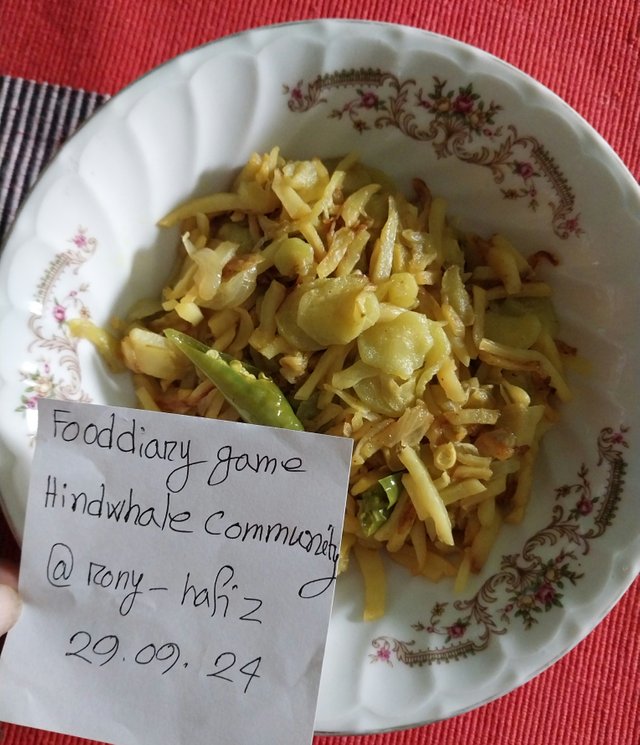 Fooddiary game
Hindwhale community
@ rony-hafiz
29.09.24